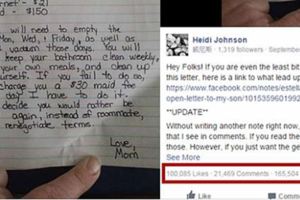 - $21
$150
will need to empty the
Mon, Wed, & Friday, as well as
those days. You will
keep your bathroom clean weekly,
own, and clean up
yourself. If you fail to do so,
charge you a $30 maid fee
day I have to do it.
decide you would rather be
again, instead of roommate,
renegotiate terms.
Love,
Mom
Heidi Johnson
1,319 followers · September
Hey Folks! If you are even the least bit
this letter, here is a link to what lead up
https://www.facebook.com/notes/estell
open-letter-to-my-son/1015359601992
**UPDATE**
Without writing another note right now,
that I see in comments. If you read the
those. However, if you just want the ge
See More
100,085 Likes · 21,469 Comments · 165,504
Like
Comment